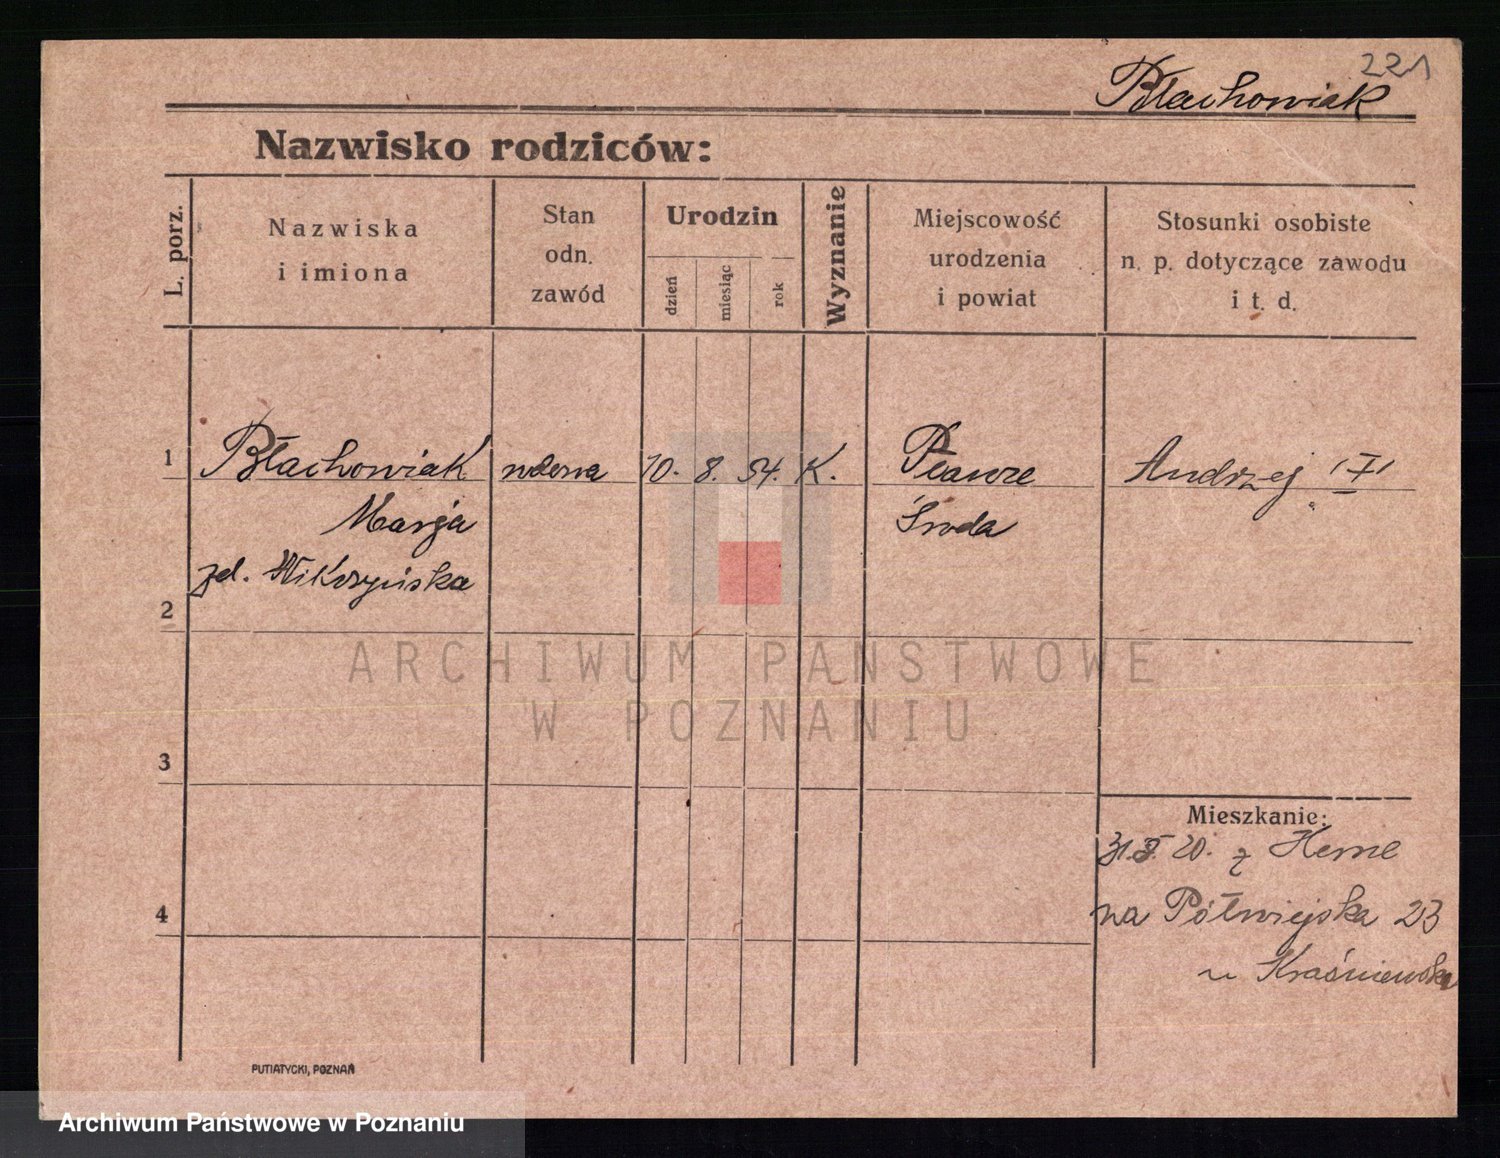 221
Błachowiak
Nazwisko rodziców:
L. porz.
Nazwiska
i imiona
Stan
odn.
zawód
Urodzin
dzień
miesiąc
rok
Wyznanie
Miejscowość
urodzenia
i powiat
Stosunki osobiste
n. p. dotyczące zawodu
i t. d.
1 Błachowiak wdowa 10. 8. 54. K. Andrzej "I"
Marja Środa
2
3
4
Mieszkanie:
20. z Herne
na Półwiejska 23
u Kraśniewska
PUTIATYCKI, POZNAŃ
ARCHIWUM PAŃSTWOWE
W POZNANIU
Archiwum Państwowe w Poznaniu